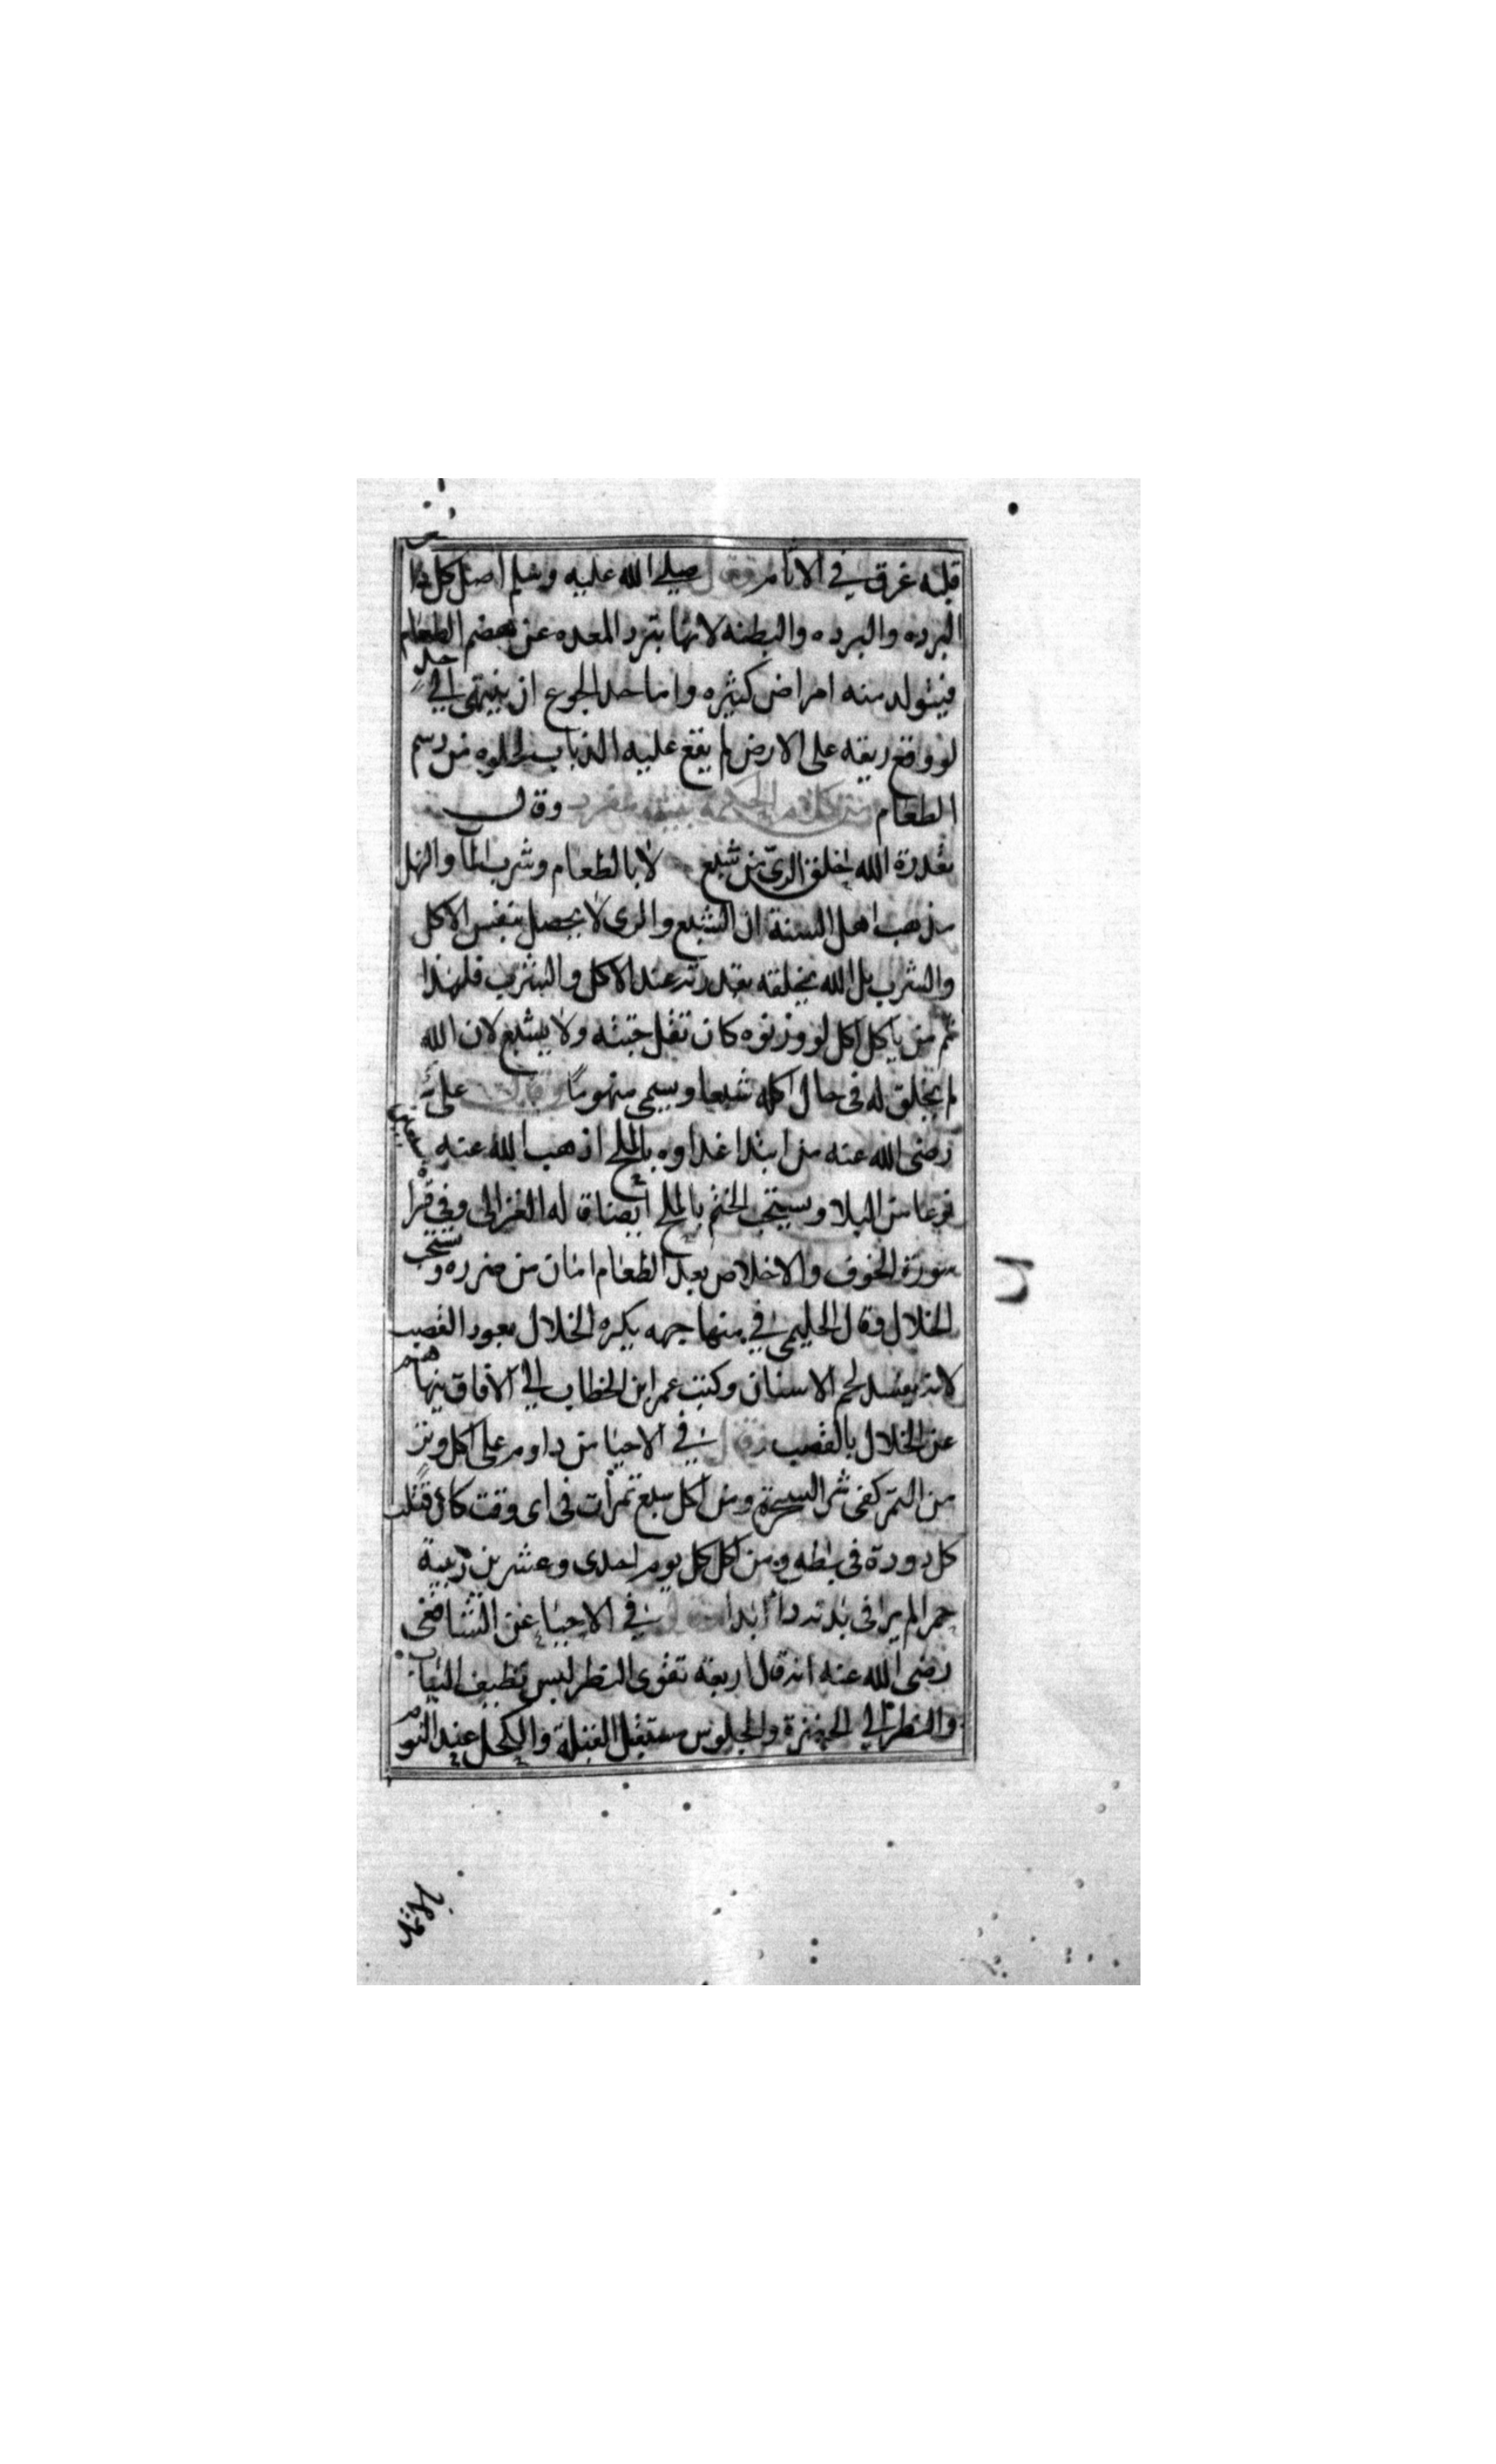 قلبه غرق في الاثام وقال صلى الله عليه وسلم اصل كل دا
البرده والبرده والبطنه لانها تبرد المعده عن هضم الطعام
فيتولد منه امراض كثيره واما حد الجوع ان ينتهى الي حد
لو وقع ريقه على الارض لم يقع عليه الذباب لخلوه من رسم
الطعام من كلام الحكمة وقال
بقدرة الله اخلق الري من شبع لا بالطعام وشرب الما والهل
مذهب اهل السنة ان الشبع والرى لا يحصل بنفس الاكل
والشرب بل الله يخلقه بقدرته عند الاكل والشرب فلهذا
ثم من ياكل اكل لو وزنوه كان ثقل جثته ولا يشبع لان الله
لم يخلق له فى حال اكله شبعا ويسمى منهوما وقال على
رضى الله عنه من ابتدا غداوه بالملح اذهب الله عنه سبعين
نوعا من البلا ويستحب الختم بالملح ايضا قاله الغزالى وفى قرا
سورة الخوف والاخلاص بعد الطعام امان من ضرره ويستحب
الخلال وقال الحليمى في منهاجه يكره الخلال بعود القصب
لانه يفسد لحم الاسنان وكتب عمر ابن الخطاب الي الافاق ينهاهم
عن الخلال بالقصب وقال في الاحيا من داوم على اكل وتر
من التمر كفى شر السحرة ومن اكل سبع تمرات فى اى وقت كان قتلت
كل دودة فى بطه ومن اكل كل يوم احدى وعشرين زبيبة
حمرا لم ير فى بدنه داا ابدا وقال في الاحيا عن الشافعى
رضى الله عنه انه قال اربعة تقوى النظر لبس نظيف الثياب
والنظر الي الخضرة والجلوس مستقبل القبلة والكحل عند النوم
بالاثمد